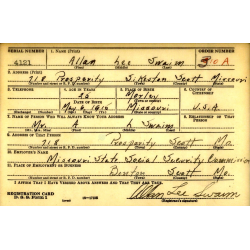 SERIAL NUMBER 1. NAME (Print) ORDER NUMBER
4121 Allan Lee Swaim 310A
2. ADDRESS (Print)
318 Prosperity Sikeston Scott Missouri
3. TELEPHONE 4. AGE IN YEARS 5. PLACE OF BIRTH 6. COUNTRY OF CITIZENSHIP
25 Morley
DATE OF BIRTH
Missouri U.S.A
7. NAME OF PERSON WHO WILL ALWAYS KNOW YOUR ADDRESS 8. RELATIONSHIP OF THAT PERSON
Mr. A L Swaim
9. ADDRESS OF THAT PERSON
318 Prosperity Scott Mo.
10. EMPLOYER'S NAME
Missouri State Social Security Commission
11. PLACE OF EMPLOYMENT OR BUSINESS
Benton Scott Mo.
I AFFIRM THAT I HAVE VERIFIED ABOVE ANSWERS AND THAT THEY ARE TRUE.
REGISTRATION CARD
D. S. S. Form 1
Allan Lee Swaim
(Registrant's signature)